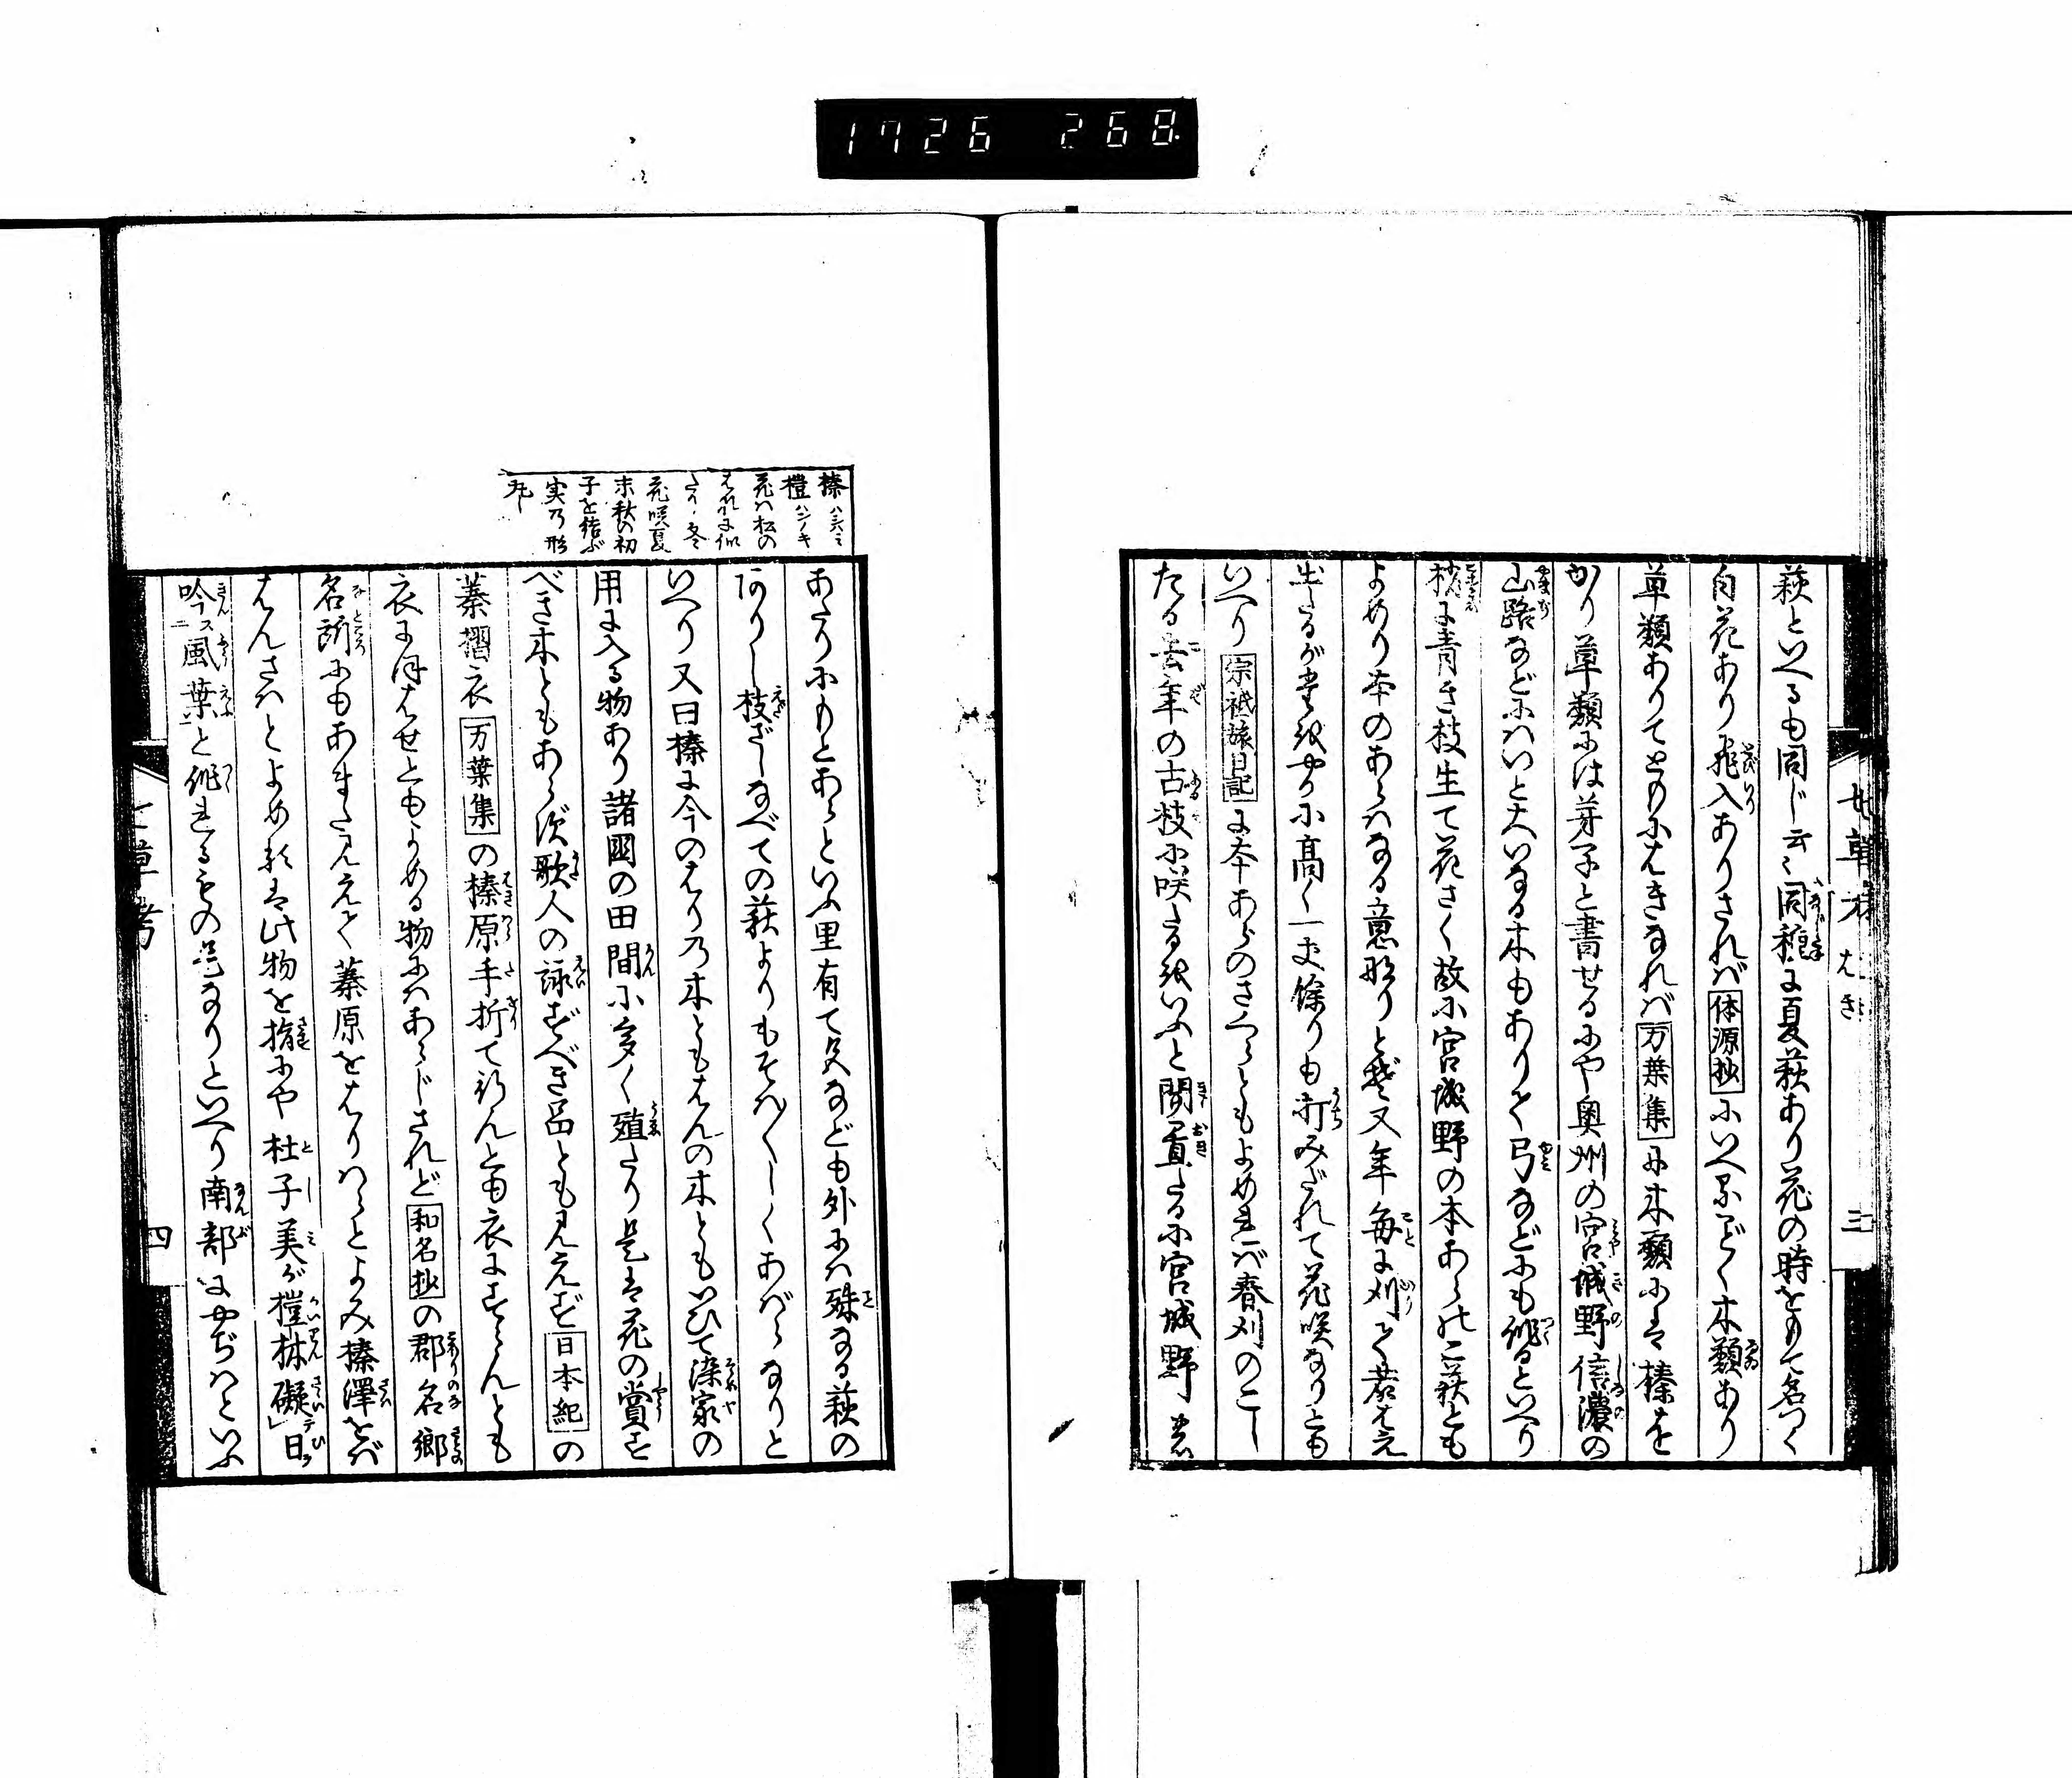 1726 268
萩といへるも同じ云々同種に夏萩あり花の時をもて名つく
白花あり飛入ありされバ体源抄にいへるごとく木類あり
草類ありてともにはきなれバ万葉集に木類には榛をと
かり草類には芽子と書せるにや奥州の宮城野信濃の
山路などにハいと大いなる木もありて弓などにも作るといへり
枝に青き枝生て花さく故に宮城野の本あらの萩とも
よめり本のあらハなる意なりと又年毎に刈て若はえ
出るが
小高く一丈餘りも打みだれて花咲なりとも
いへり宗祇旅日記に本あらのさくらともよめれバ春刈のこし
たる去年の古枝に咲たるをいふと聞置たるに宮城野
七草考 はき 三
榛 ハシバミ
榿 ハンノキ
花ハ松の
はれに似
たり冬
花咲夏
末秋の初
子を結ぶ
実の形
丸し
あたりにもとあらといふ里有て
なども外にハ殊なる萩の
ありし枝ざしなべての萩よりもそハ〳〵しくあばらなりと
いへり又曰榛は今のはりの木ともはんの木ともいひて染家の
用に入る物あり諸國の田間に多く殖たり是は花の賞す
べき木ともあらず歌人の詠ずべき品とも見えず日本紀の
蓁摺衣万葉集の榛原手折て行んとも衣にすらんとも
衣にほはせともよめる物にハあらじされど和名抄の郡名郷
名所にもあまた見えて蓁原をはりハらとよみ榛澤をバ
はんさハとよめるは此物を指にや杜子美が榿林礙日
吟風葉と作れるもの是なりといへり南部にやちハといふ
七草考 四